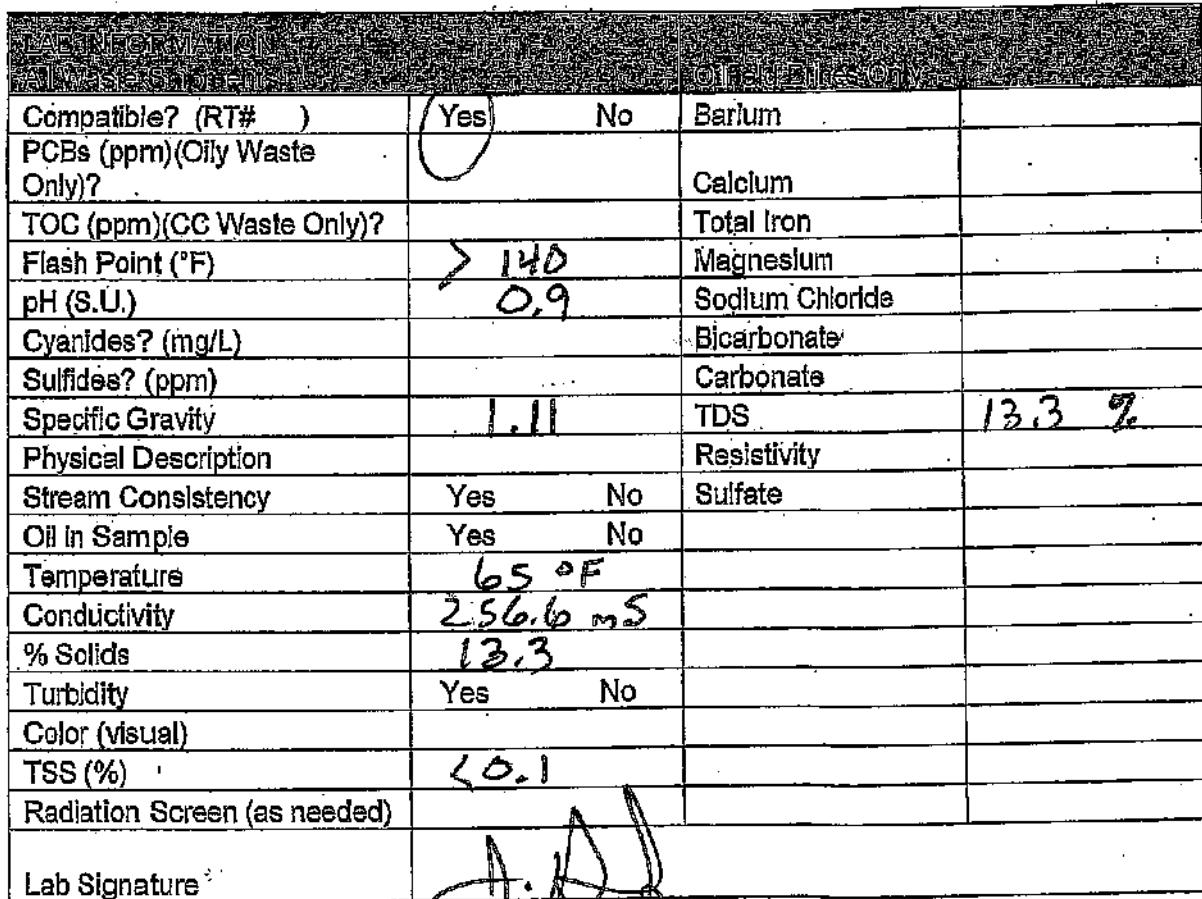 LAB INFORMATION
All Waste Shipments Oilfield Brines Only
Compatible? (RT# ) Yes No Barium
PCBs (ppm)(Oily Waste
Only)? Calcium
TOC (ppm)(CC Waste Only)? Total Iron
Flash Point (°F) > 140 Magnesium
pH (S.U.) 0.9 Sodium Chloride
Cyanides? (mg/L) Bicarbonate
Sulfides? (ppm) Carbonate
Specific Gravity 1.11 TDS 13.3 %
Physical Description Resistivity
Stream Consistency Yes No Sulfate
Oil in Sample Yes No
Temperature 65 °F
Conductivity 256.6 mS
% Solids 13.3
Turbidity Yes No
Color (visual)
TSS (%) <0.1
Radiation Screen (as needed)
Lab Signature